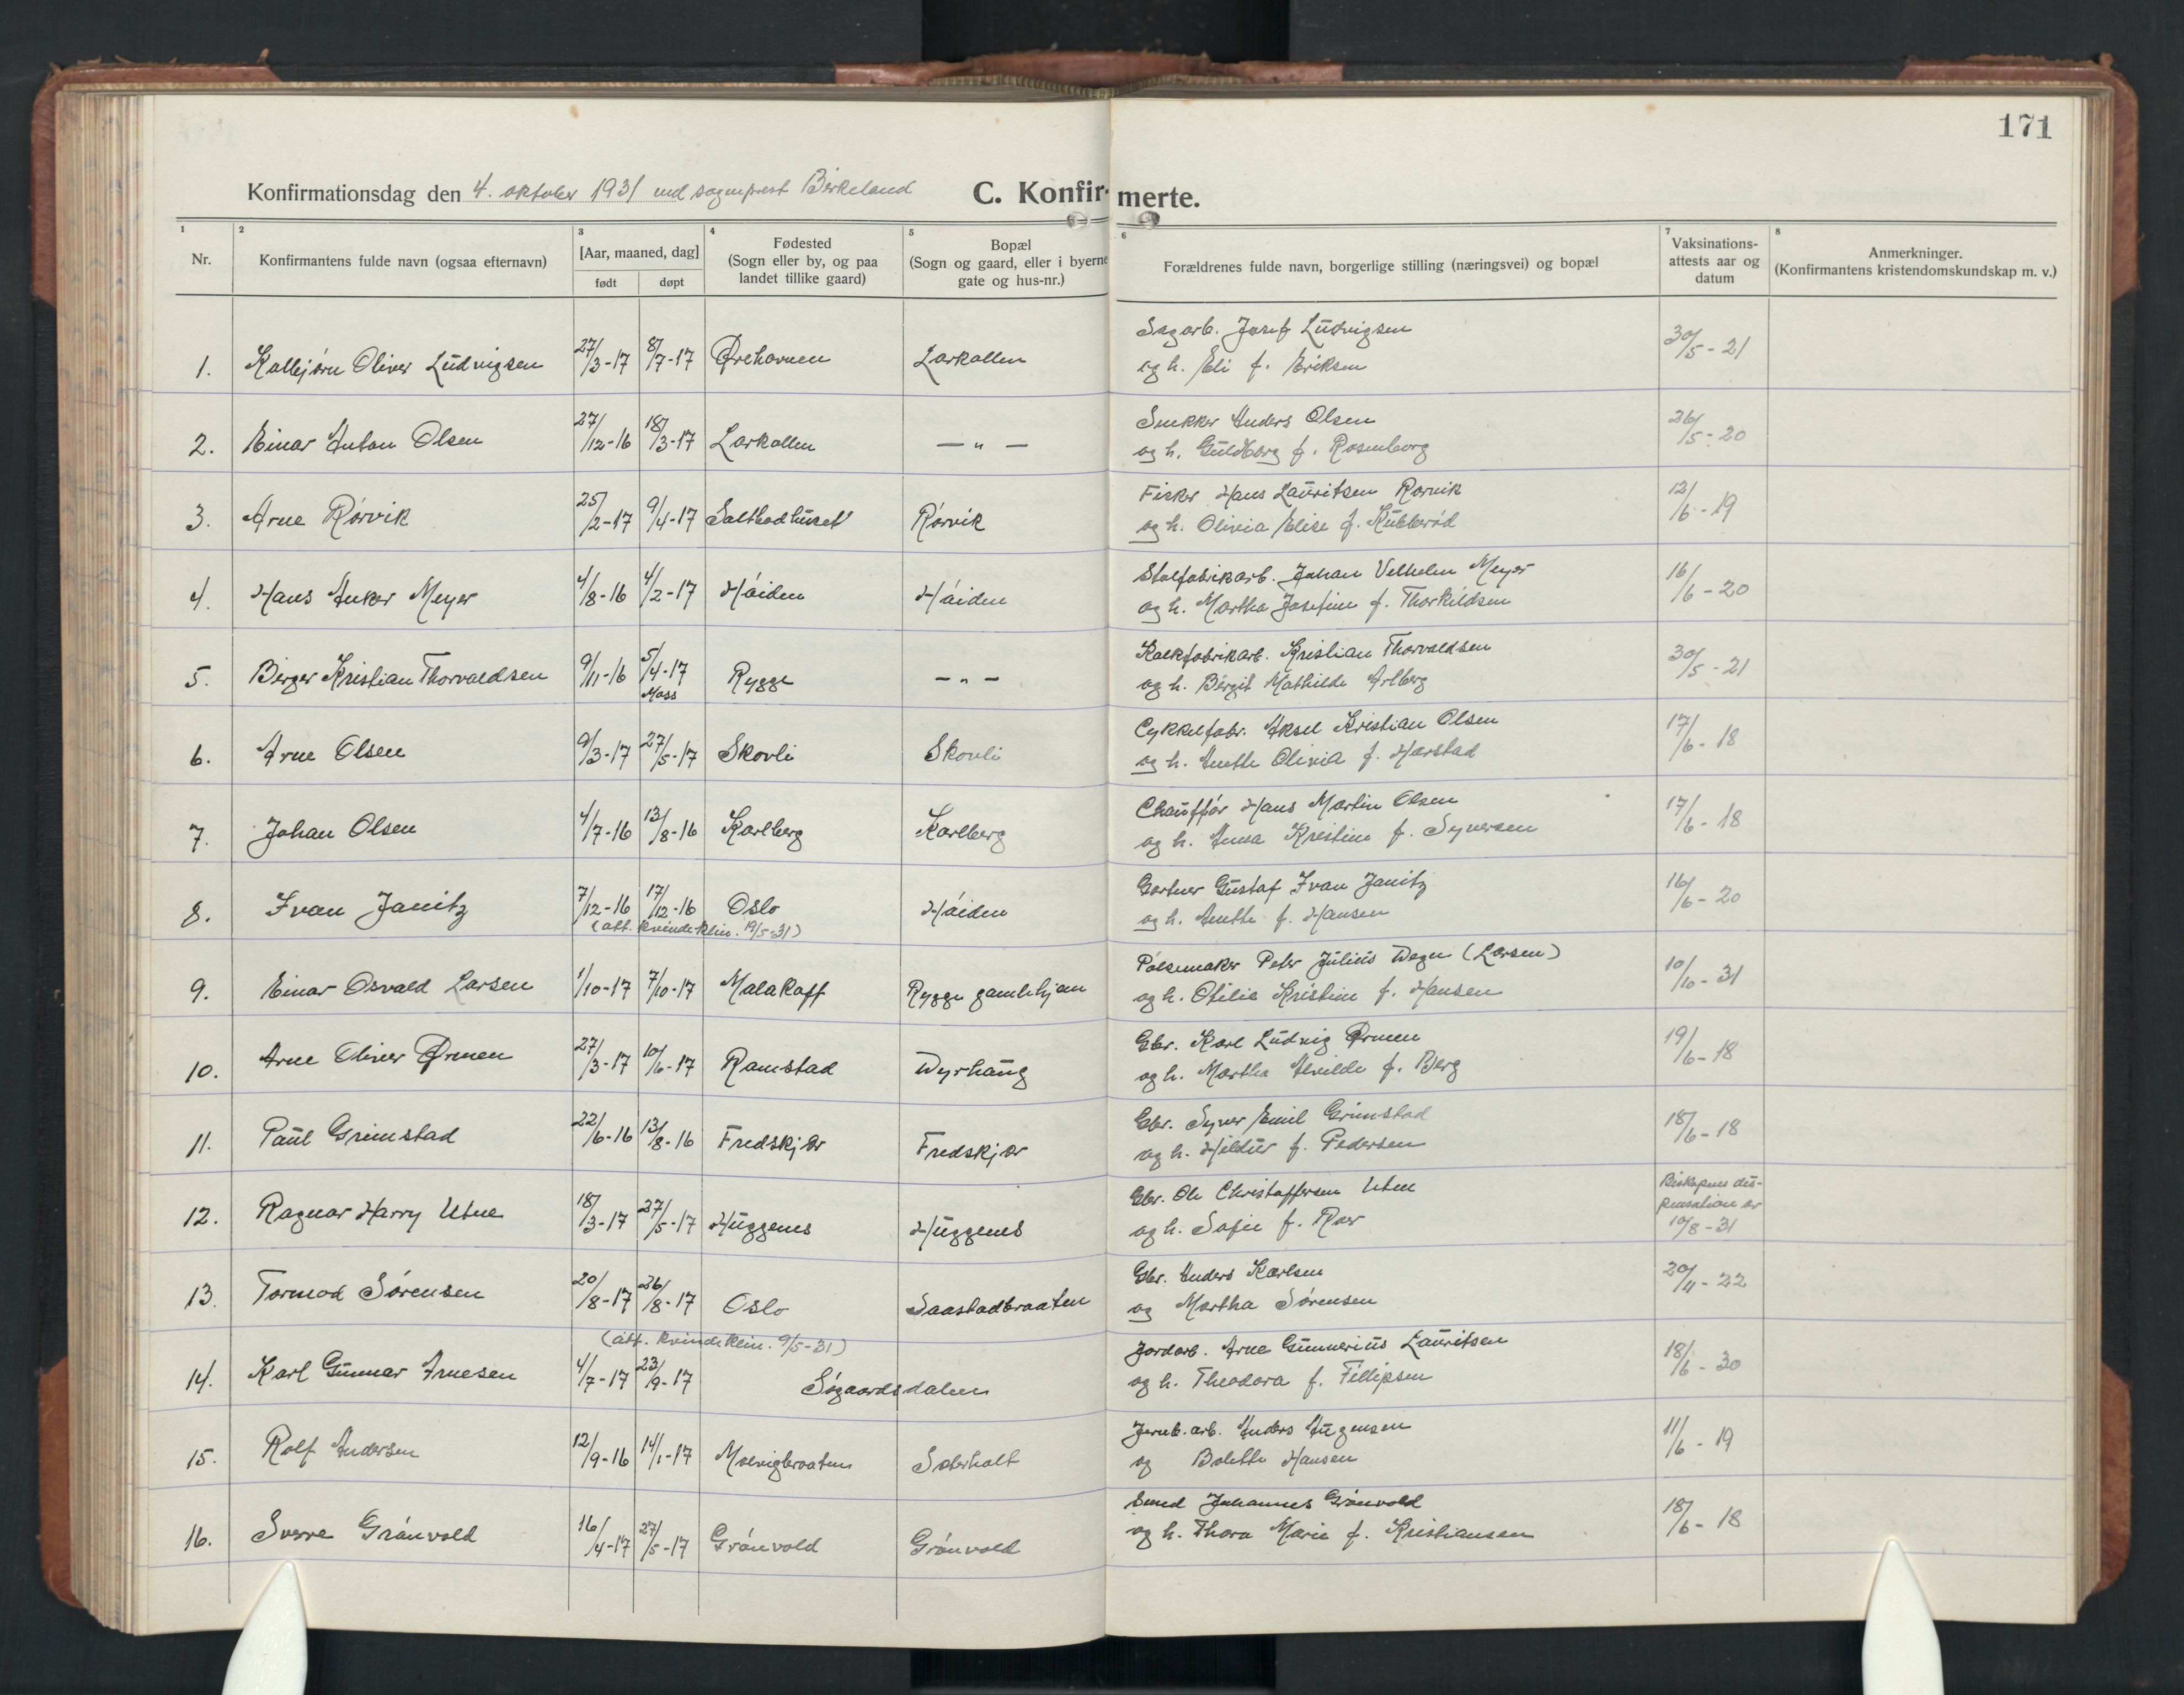 171
Konfirmationsdag den 4. oktober 1931 ved sogneprest Birkeland C. Konfirmerte.
1 2 3 4 5 6 7 8
Nr. Konfirmantens fulde navn (ogsaa efternavn) [Aar, maaned, dag] født døpt Fødested (Sogn eller by, og paa landet tillike gaard) Bopæl (Sogn og gaard, eller i byerne gate og hus-nr.) Forældrenes fulde navn, borgerlige stilling (næringsvei) og bopæl Vaksinations-attests aar og datum Anmerkninger. (Konfirmantens kristendomskundskap m. v.)
Sagarb. Josef Ludvigsen
1. Kolbjørn Oliver Ludvigsen 27/3-17 8/7-17 Ørehavnen Larkollen og h. Eli f. Eriksen 30/5-21
Snekker Anders Olsen
2. Einar Anton Olsen 27/12-16 18/3-17 Larkollen — " — og h. Guldborg f. Rosenborg 26/5-20
Fisker Hans Lauritsen Rørvik
3. Arne Rørvik 25/2-17 9/4-17 Saltbodhuset Rørvik og h. Olivia Elise f. Kubberød 12/6-19
Stolfabrikarb. Johan Vilhelm Meyer
4. Hans Anker Meyer 4/8-16 4/2-17 Høiden Høiden og h. Martha Josefine f. Thorkildsen 16/6-20
Kalkfabrikarb. Kristian Thorvaldsen
5. Birger Kristian Thorvaldsen 9/11-16 5/4-17 Moss Rygge — " — og h. Birgit Mathilde Arlberg 30/5-21
Cykkelfabr. Aksel Kristian Olsen
6. Arne Olsen 9/3-17 27/5-17 Skovli Skovli og h. Anette Olivia f. Harstad 17/6-18
Chauffør Hans Martin Olsen
7. Johan Olsen 4/7-16 13/8-16 Karlberg Karlberg og h. Anna Kristine f. Syversen 17/6-18
Gartner Gustaf Ivan Janitz
8. Ivan Janitz 7/12-16 17/12-16 Oslo Høiden og h. Anette f. Hansen 16/6-20
(att. kvindeklin. 19/5-31)
Pølsemaker Peter Julius Wegn (Larsen)
9. Einar Osvald Larsen 1/10-17 7/10-17 Malakoff Rygge gamlehjem og h. Otilie Kristine f. Hansen 10/10-31
Gbr. Karl Ludvig Ørmen
10. Arne Oliver Ørmen 27/3-17 10/6-17 Ramstad Dyrhaug og h. Martha Alvilde f. Berg 19/6-18
Gbr. Syver Emil Grimstad
11. Paul Grimstad 22/6-16 13/8-16 Fredskjær Fredskjær og h. Hildur f. Pedersen 18/6-18
Gbr. Ole Christoffersen Utne
12. Ragnar Harry Utne 18/3-17 27/5-17 Huggenes Huggenes og h. Sofie f. Rør Biskopens dis-
pensation av
10/8-31
Gbr. Anders Karlsen
13. Tormod Sørensen 20/8-17 26/8-17 Oslo Saastadbraaten og Martha Sørensen 20/11-22
(att. kvindeklin. 9/5-31)
Jordarb. Arne Gunnerius Lauritsen
14. Karl Gunnar Arnesen 4/7-17 23/9-17 Søgaardsdalen og h. Theodora f. Fillipsen 18/6-30
Jernb. arb. Anders Augensen
15. Rolf Andersen 12/9-16 14/1-17 Molvigbraaten Solerholt og Bolette Hansen 11/6-19
Smed Johannes Grønvold
16. Sverre Grønvold 16/4-17 27/5-17 Grønvold Grønvold og h. Thora Marie f. Kristiansen 18/6-18